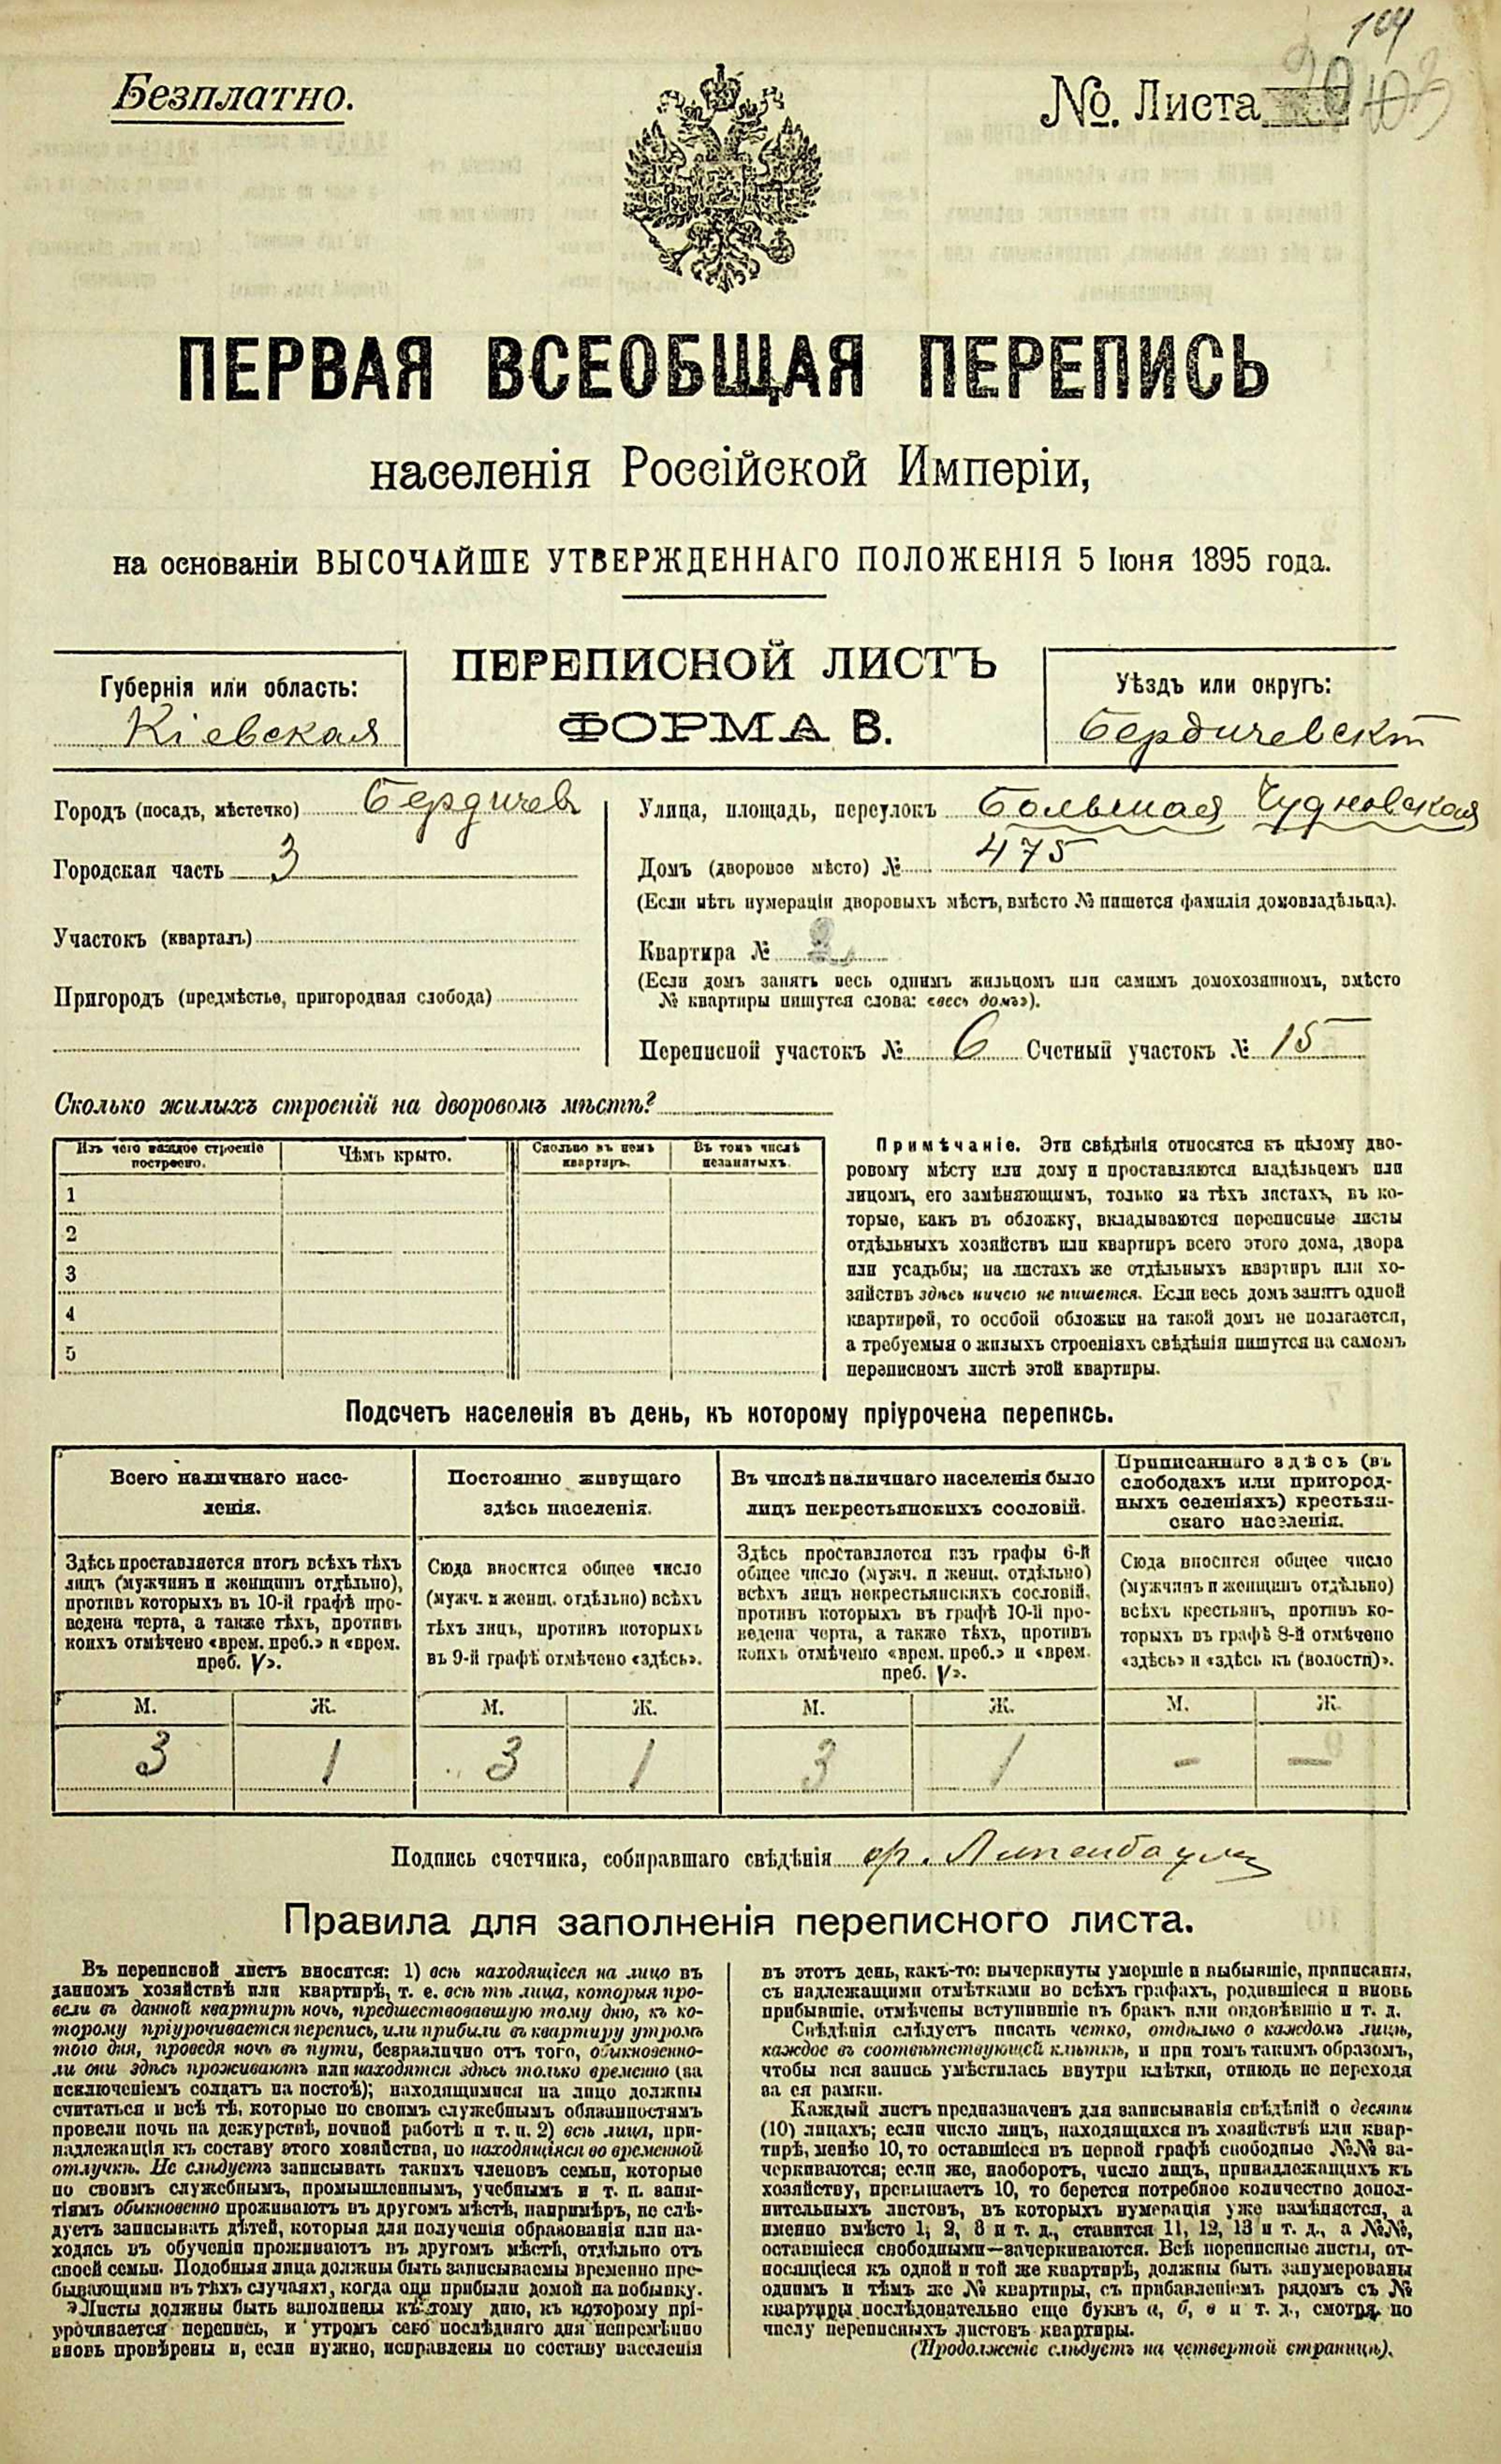 104
Безплатно.
№. Листа
ПЕРВАЯ ВСЕОБЩАЯ ПЕРЕПИСЬ
населенія Россійской Имперіи,
на основаніи ВЫСОЧАЙШЕ УТВЕРЖДЕННАГО ПОЛОЖЕНІЯ 5 Іюня 1895 года.
ПЕРЕПИСНОЙ ЛИСТЪ
ФОРМА В.
Губернія или область:
Кіевская
Уѣздъ или округъ:
Бердичевскій
Городъ (посадъ, мѣстечко) Бердичевъ
Городская часть 3
Участокъ (кварталъ)
Пригородъ (предмѣстье, пригородная слобода)
Улица, площадь, переулокъ Большая Чудновская
Домъ (дворовое мѣсто) № 475
(Если нѣтъ нумераціи дворовыхъ мѣстъ, вмѣсто № пишется фамилія домовладѣльца).
Квартира № 2
(Если домъ занятъ весь однимъ жильцомъ или самимъ домохозяиномъ, вмѣсто
№ квартиры пишутся слова: «весь домъ»).
Переписной участокъ № 6 Счетный участокъ № 15
Сколько жилыхъ строеній на дворовомъ мѣстѣ?
Изъ чего каждое строеніе
построено.
Чѣмъ крыто.
Сколько въ немъ
квартиръ.
Въ томъ числѣ
незанятыхъ.
1
2
3
4
5
Примѣчаніе. Эти свѣдѣнія относятся къ цѣлому дво-
ровому мѣсту или дому и проставляются владѣльцемъ или
лицомъ, его замѣняющимъ, только на тѣхъ листахъ, въ ко-
торые, какъ въ обложку, вкладываются переписные листы
отдѣльныхъ хозяйствъ или квартиръ всего этого дома, двора
или усадьбы; на листахъ же отдѣльныхъ квартиръ или хо-
зяйствъ здѣсь ничего не пишется. Если весь домъ занятъ одной
квартирой, то особой обложки на такой домъ не полагается,
а требуемыя о жилыхъ строеніяхъ свѣдѣнія пишутся на самомъ
переписномъ листѣ этой квартиры.
Подсчетъ населенія въ день, къ которому пріурочена перепись.
Всего наличнаго насе-
ленія.
Постоянно живущаго
здѣсь населенія.
Въ числѣ наличнаго населенія было
лицъ некрестьянскихъ сословій.
Приписаннаго здѣсь (въ
слободахъ или пригород-
ныхъ селеніяхъ) крестьян-
скаго населенія.
Здѣсь проставляется итогъ всѣхъ тѣхъ
лицъ (мужчинъ и женщинъ отдѣльно),
противъ которыхъ въ 10-й графѣ про-
ведена черта, а также тѣхъ, противъ
коихъ отмѣчено «врем. преб.» и «врем.
преб. V».
Сюда вносится общее число
(мужч. и женщ. отдѣльно) всѣхъ
тѣхъ лицъ, противъ которыхъ
въ 9-й графѣ отмѣчено «здѣсь».
Здѣсь проставляется изъ графы 6-й
общее число (мужч. и женщ. отдѣльно)
всѣхъ лицъ некрестьянскихъ сословій,
противъ которыхъ въ графѣ 10-й про-
ведена черта, а также тѣхъ, противъ
коихъ отмѣчено «врем. преб.» и «врем.
преб. V».
Сюда вносится общее число
(мужчинъ и женщинъ отдѣльно)
всѣхъ крестьянъ, противъ ко-
торыхъ въ графѣ 8-й отмѣчено
«здѣсь» и «здѣсь къ (волости)».
М. Ж. М. Ж. М. Ж. М. Ж.
3 1 3 1 3 1 - -
Подпись счетчика, собиравшаго свѣдѣнія
Правила для заполненія переписного листа.
Въ переписной листъ вносятся: 1) всѣ находящіеся на лицо въ
данномъ хозяйствѣ или квартирѣ, т. е. всѣ тѣ лица, которыя про-
вели въ данной квартирѣ ночь, предшествовавшую тому дню, къ ко-
торому пріурочивается перепись, или прибыли въ квартиру утромъ
того дня, проведя ночь въ пути, безразлично отъ того, обыкновенно-
ли они здѣсь проживаютъ или находятся здѣсь только временно (за
исключеніемъ солдатъ на постоѣ); находящимися на лицо должны
считаться и всѣ тѣ, которые по своимъ служебнымъ обязанностямъ
провели ночь на дежурствѣ, ночной работѣ и т. п. 2) всѣ лица, при-
надлежащія къ составу этого хозяйства, но находящіяся во временной
отлучкѣ. Не слѣдуетъ записывать такихъ членовъ семьи, которые
по своимъ служебнымъ, промышленнымъ, учебнымъ и т. п. заня-
тіямъ обыкновенно проживаютъ въ другомъ мѣстѣ, напримѣръ, не слѣ-
дуетъ записывать дѣтей, которыя для полученія образованія или на-
ходясь въ обученіи проживаютъ въ другомъ мѣстѣ, отдѣльно отъ
своей семьи. Подобныя лица должны быть записываемы временно пре-
бывающими въ тѣхъ случаяхъ, когда они прибыли домой на побывку.
Листы должны быть заполнены къ тому дню, къ которому прі-
урочивается перепись, и утромъ сего послѣдняго дня непремѣнно
вновь провѣрены и, если нужно, исправлены по составу населенія
въ этотъ день, какъ-то: вычеркнуты умершіе и выбывшіе, приписаны,
съ надлежащими отмѣтками во всѣхъ графахъ, родившіеся и вновь
прибывшіе, отмѣчены вступившіе въ бракъ или овдовѣвшіе и т. д.
Свѣдѣнія слѣдуетъ писать четко, отдѣльно о каждомъ лицѣ,
каждое въ соотвѣтствующей клѣткѣ, и при томъ такимъ образомъ,
чтобы вся запись умѣстилась внутри клѣтки, отнюдь не переходя
за ея рамки.
Каждый листъ предназначенъ для записыванія свѣдѣній о десяти
(10) лицахъ; если число лицъ, находящихся въ хозяйствѣ или квар-
тирѣ, менѣе 10, то оставшіеся въ первой графѣ свободные №№ за-
черкиваются; если же, наоборотъ, число лицъ, принадлежащихъ къ
хозяйству, превышаетъ 10, то берется потребное количество допол-
нительныхъ листовъ, въ которыхъ нумерація уже измѣняется, а
именно вмѣсто 1, 2, 3 и т. д., ставится 11, 12, 13 и т. д., а №№,
оставшіеся свободными—зачеркиваются. Всѣ переписные листы, от-
носящіеся къ одной и той же квартирѣ, должны быть занумерованы
однимъ и тѣмъ же № квартиры, съ прибавленіемъ рядомъ съ №
квартиры послѣдовательно еще буквъ а, б, в и т. д., смотря по
числу переписныхъ листовъ квартиры.
(Продолженіе слѣдуетъ на четвертой страницѣ).